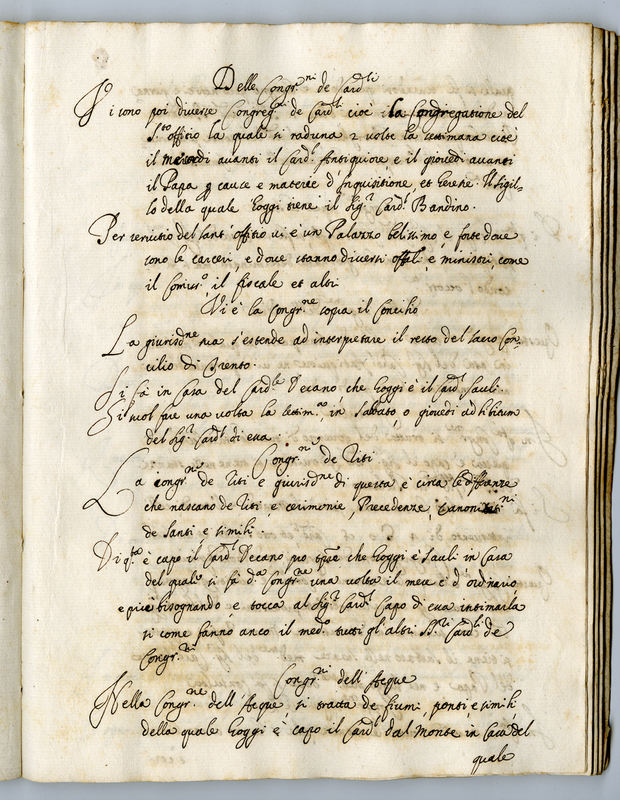 Delle Congr.ni de Card.li
Vi sono poi diverse Congreg.ni de Card.li cioè la Congregatione del
S.to offitio la quale si raduna 2 volte la settimana cioè
il mercordi avanti il Card.l Antiquiore e il giovedi avanti
il Papa p cause e materie d'Inquisitione, et heresie. Il sigil-
lo della quale hoggi tiene il Sig.r Card.l Bandino.
Per servitio del sant'offitio vi è un Palazzo belissimo e forte dove
sono le carceri, e dove stanno diversi offitiali, e ministri, come
il Comiss.o, il fiscale et altri
Vi è la Congr.ne sopra il Concilio
La giurisd.ne sua s'estende ad interpetare il resto del sacro Con-
cilio di Trento.
Si fà in Casa del Card.le Decano che hoggi è il Card.l Sauli.
Si suol fare una volta la settim.a, in Sabbato, o giovedi ad libitum
del Sig.r Card.l di essa.
Congr.ni de Riti
La congr.ne de Riti e giurisd.ne di questa è circa le differenze
che nascano de Riti, e cerimonie, Precedenze, Canonizati.ni
de Santi, e simili.
Di q.ta è capo il Card.l Decano pro tpre che hoggi è Sauli in Casa
del quale si fà d.a Congr.ne una volta il mese è d'ordinario
e più bisognando, e tocca al Sig.r Card.l Capo di essa intimarla
si come fanno anco il med.o tutti gl'altri SS.ri Card.li de
Congr.ni
Congr.ni dell'Acque
Nella Congr.ne dell'Acque si tratta de fiumi, ponti, e simili
della quale hoggi è capo il Card.l dal Monte, in Casa del
quale